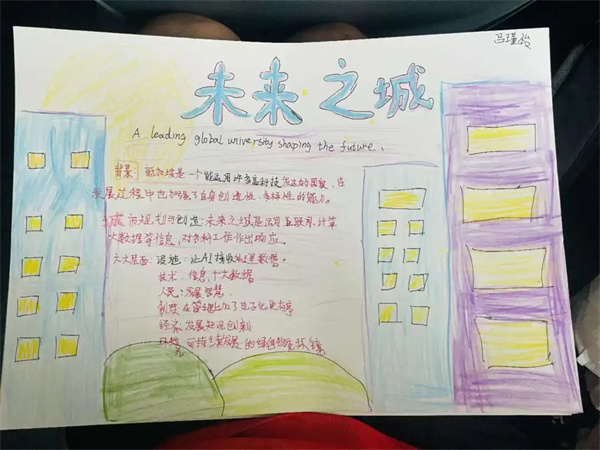 吕瑾
未来之城
A leading global university shaping the future.
背景 新加坡是一个能运用许多高科技发达的国家，在
发展过程中也加强了自身创造性、多样性的能力。
城市规划与创造：未来之城应运用互联网、计算
大数据等信息，对各种工作作出响应。
六大层面：设施：让AI接收处理数据。
技术：信息、大数据
人民：发展智慧
制度：在管理上加了电子化更有序
经济：发展知识创新
环境：可持续发展的绿色环境